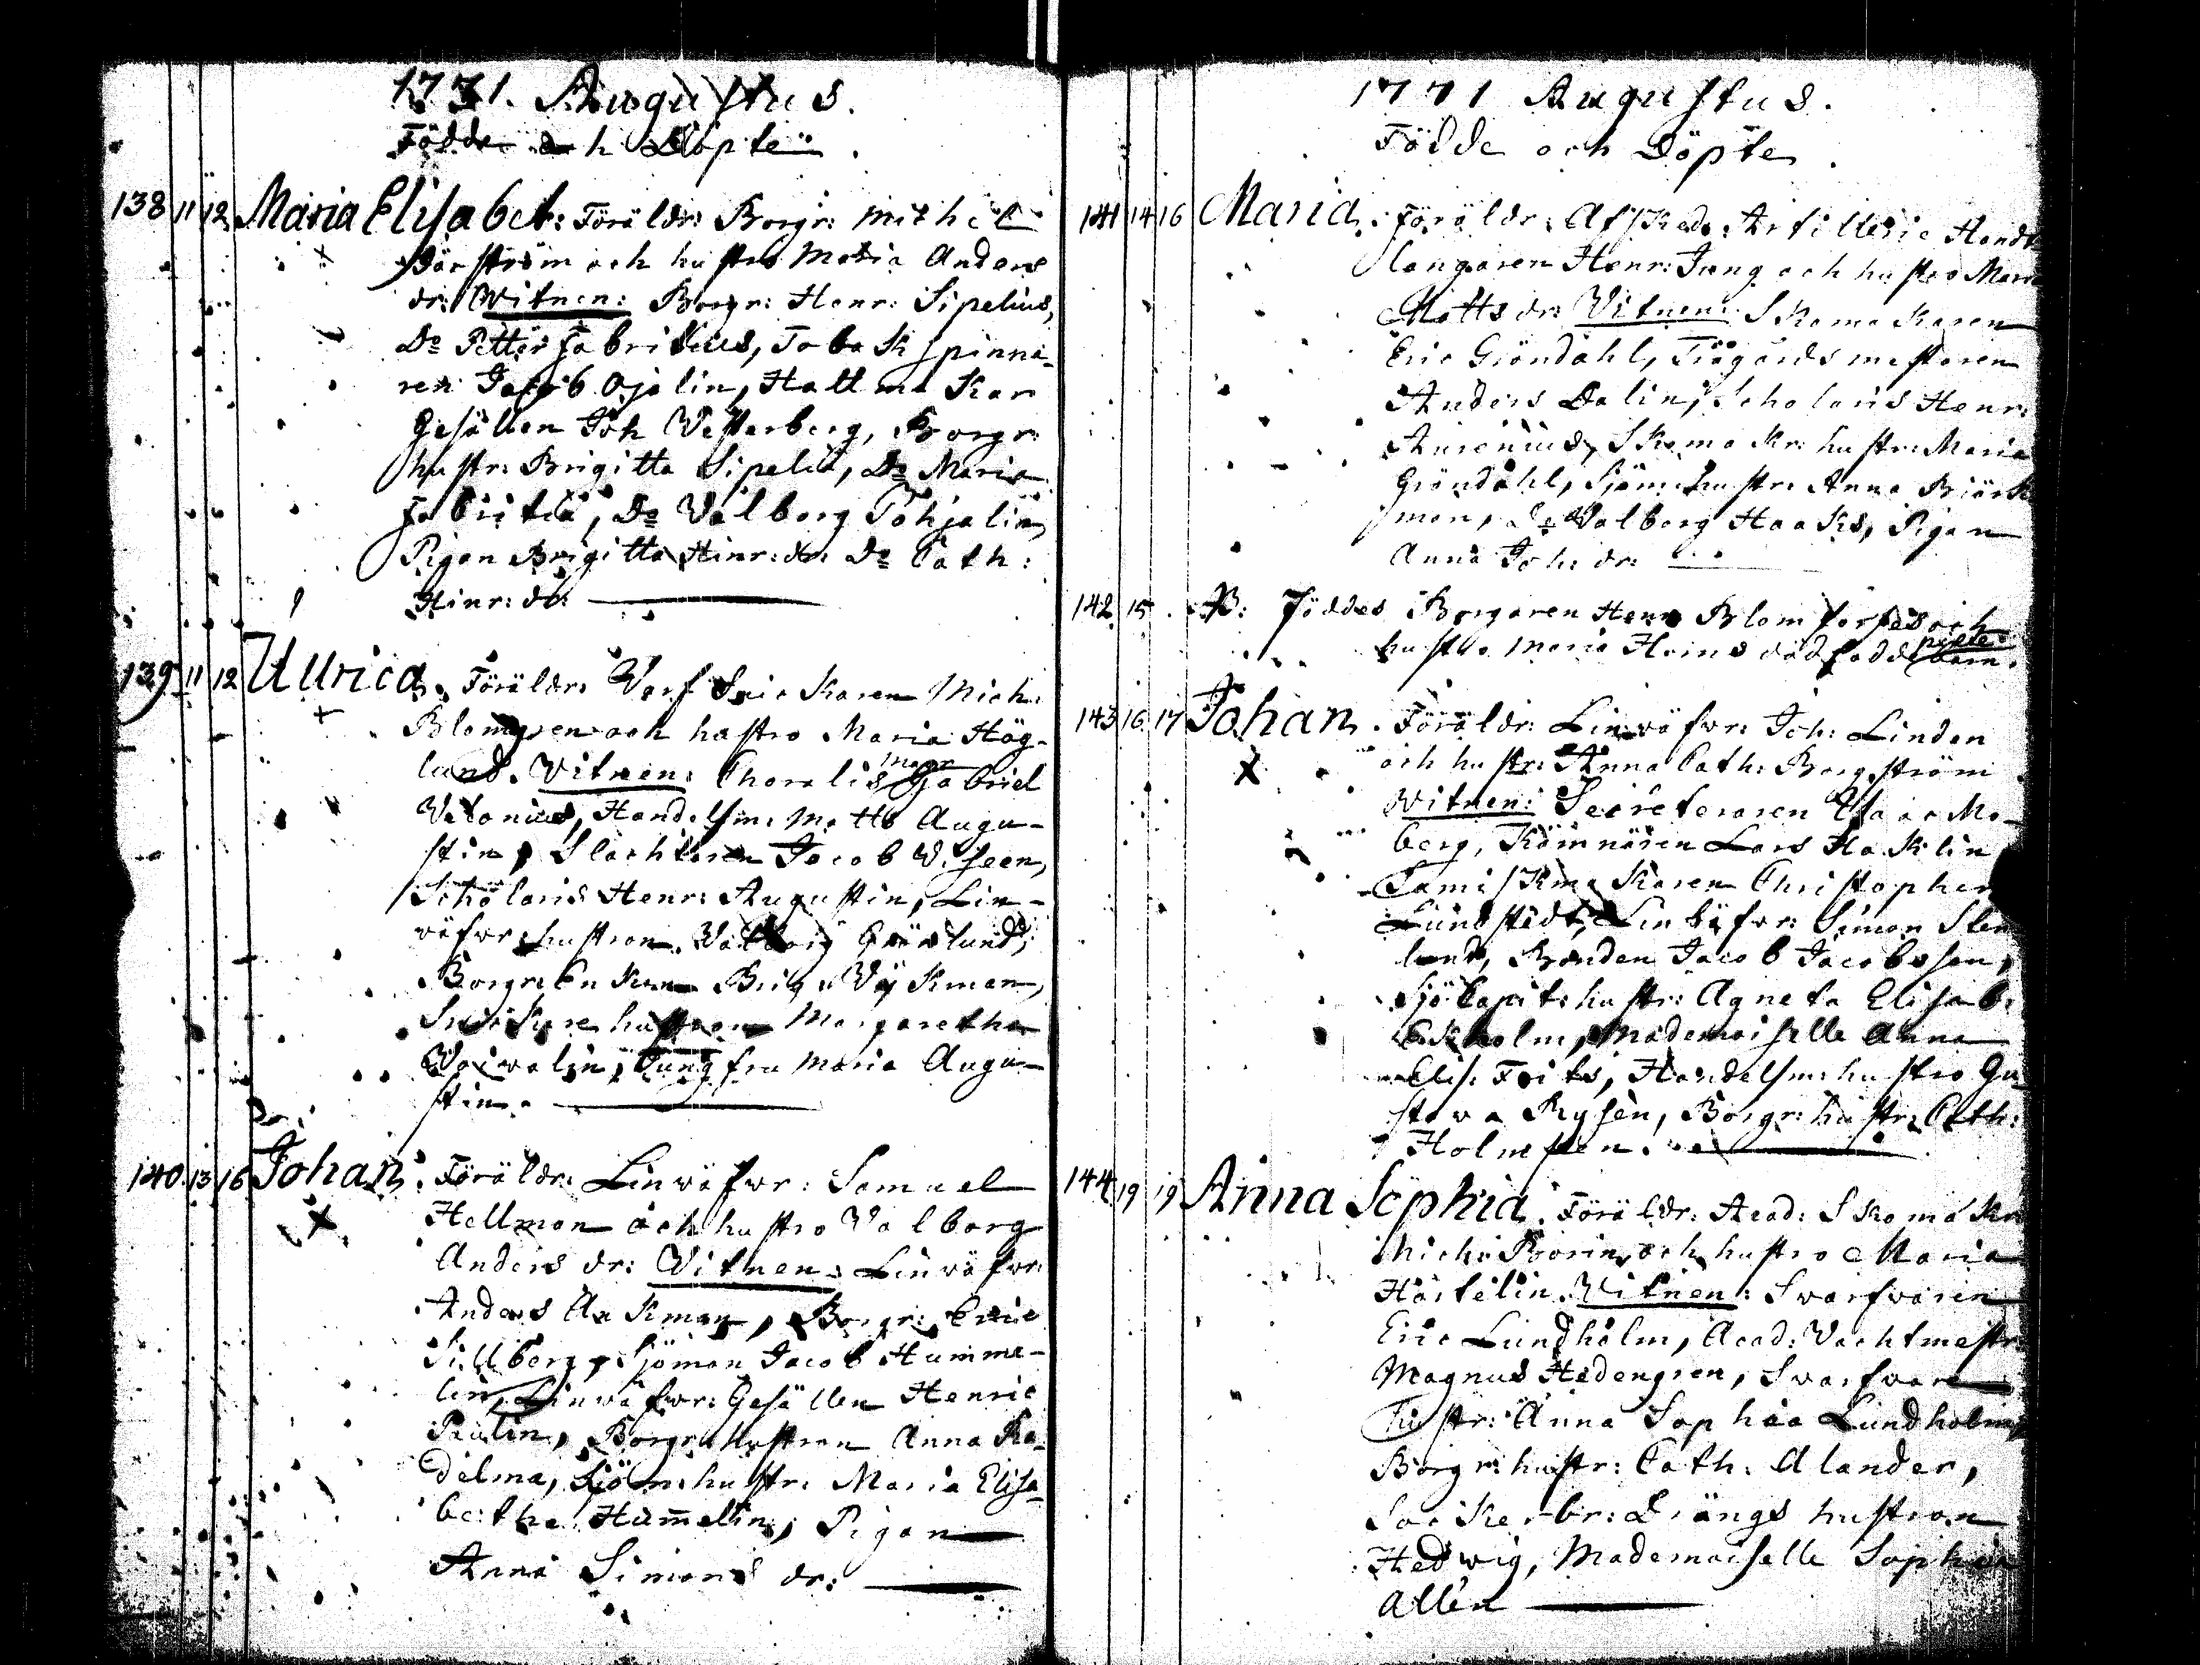 1771. Augustus.
Födde och Döpte.
138 11 12 Maria Elisabet: Föräldr: Borgr: Michel
ström och hustro Maria Anders
dr: Witnen: Borgr: Henr: Sipelius,
Do Petter Fabritius, Tobakspinna-
ren Jacob Ojalin, Hattmakar
Gesällen Joh Westerberg, Borgr:
hustr: Brigitta Sipelia, Do Maria
Fabritia, Do Valborg Tohjalin
Pigan Brigitta Hinr: dr: Do Cath:
Hinr: dr:
139 11 12 Ullrica. Föräldr: Varf Snickaren Mich:
Blomgren och hustro Maria Hög-
lund. Witnen: Choralis Magr Gabriel
Vetonius, Handelsm: Matts Augu-
stin, Slachtaren Jacob
Scholaris Henr: Augustin, Lin-
väfwr: hustron Valborg Grönlund,
Borgr: Enkan Brig: Wykman,
Snickare hustron Margaretha
Waivalin, Jungfru Maria Augu-
stin.
140 13 16 Johan. Föräldr: Linwäfwr: Samuel
Hellman och hustro Valborg
Anders dr: Vitnen: Linwäfwr:
Anders Aakman, Borgr: Eric
Killberg, Sjöman Jacob Humme-
lin, Linwäfwr: Gesällen Henric
Paulin, Borgr: hustron Anna Ra-
delma, Sjöm: hustr: Maria Elisa-
betha Hummelin, Pigan
Anna Simons dr:
1771 Augustus.
Födde och Döpte.
141 14 16 Maria. Föräldr: Afsked: Artillerie Handt
langaren Henr: Jung och hustro Maria
Matts dr: Vitnen: Skomakaren
Eric Gröndahl, Trägårdsmestaren
Anders Dalin, Scholaris Henr:
Aurenius, Skomakr: hustr: Maria
Gröndahl, Sjöm: hustr: Anna Biörk
man, Do Valborg Haaks, Pigan
Anna Joh: dr:
142 15 NB: Föddes Borgaren Henr Blomfors och
hustro Maria Heins dödfödde barn.
143 16 17 Johan. Föräldr: Linwäfwr: Joh: Linden
och hustr: Anna Cath: Borgström
Witnen: Secreteraren Isaac Mo-
berg, Kämnären Lars Haklin
Christopher
Lundstedt, Linwäfwr: Simon Sten
lund, Bonden Jacob Jacobsson,
Sjö Capit: hustr: Agneta Elisab:
Ekholm, Mademoiselle Anna
Elis: Frits, Handelsm: hustro Gu-
stava Rysén, Borgr: hustr: Cath:
Holmsten.
144 19 19 Anna Sophia. Föräldr: Acad: Skomakr
Mich: Borin, och hustro Maria
Hörtelin. Vitnen: Swarfvaren
Eric Lundholm, Acad: Vachtmestr:
Magnus Hedengren, Swarfvare
hustr: Anna Sophia Lundholm,
Borgr: hustr: Cath: Alander,
Sockerbr: Drängs hustron
Hedwig, Mademoiselle Sophia
Allén